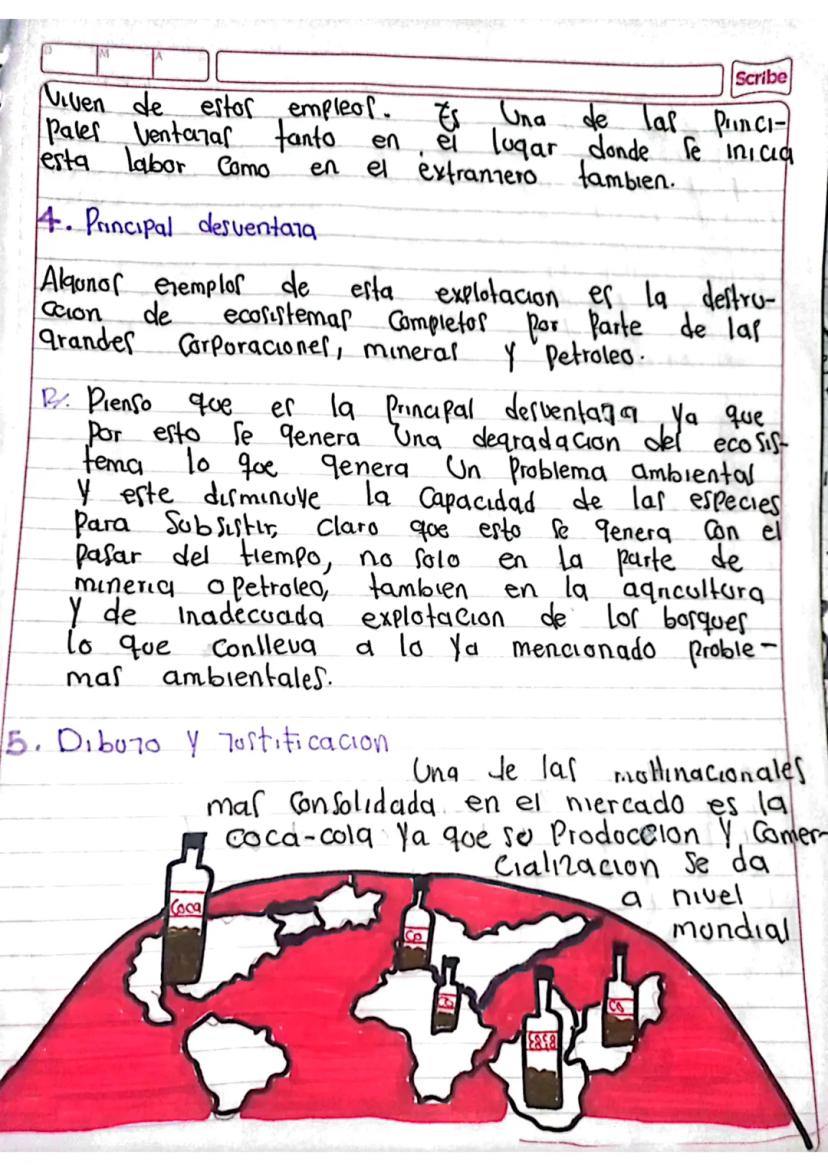 D M A
Scribe
Viven de estos empleos. Es una de las princi-
pales ventajas tanto en el lugar donde se inicia
esta labor como en el extranjero tambien.
4. Principal desventaja
Algunos ejemplos de esta explotacion es la destru-
ccion de ecosistemas completos por parte de las
grandes corporaciones, mineras y petroleo.
R/. Pienso que es la principal desventaja ya que
por esto se genera una degradacion del ecosis-
tema lo que genera un problema ambiental
y este disminuye la capacidad de las especies
para subsistir, claro que esto se genera con el
pasar del tiempo, no solo en la parte de
mineria o petroleo, tambien en la agricultura
y de inadecuada explotacion de los bosques
lo que conlleva a lo ya mencionado proble-
mas ambientales.
5. Dibujo y justificacion
Una de las multinacionales
mas consolidada en el mercado es la
coca-cola ya que su produccion y comer-
cializacion se da
a nivel
mundial
Coca
Co
Co